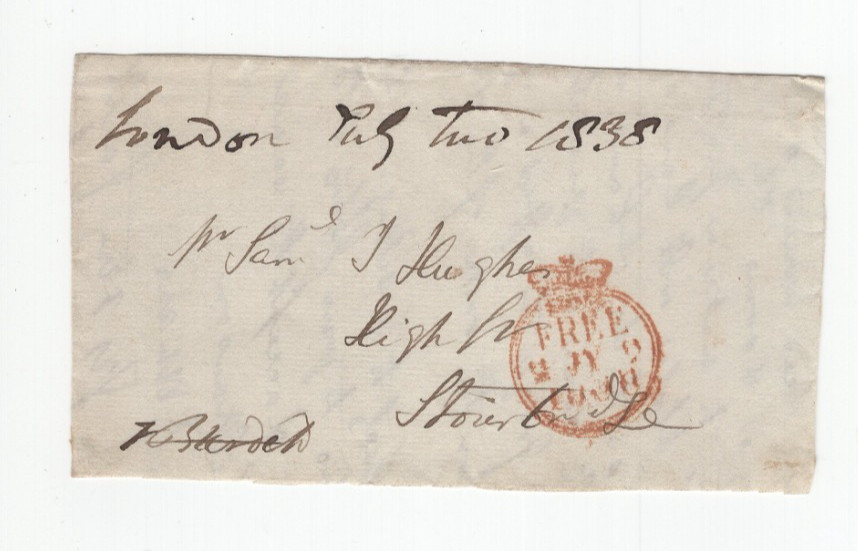 London July two 1838
Mr Saml J Hughes
High St
Stourbridge
FREE
JY
1838
F Burdett